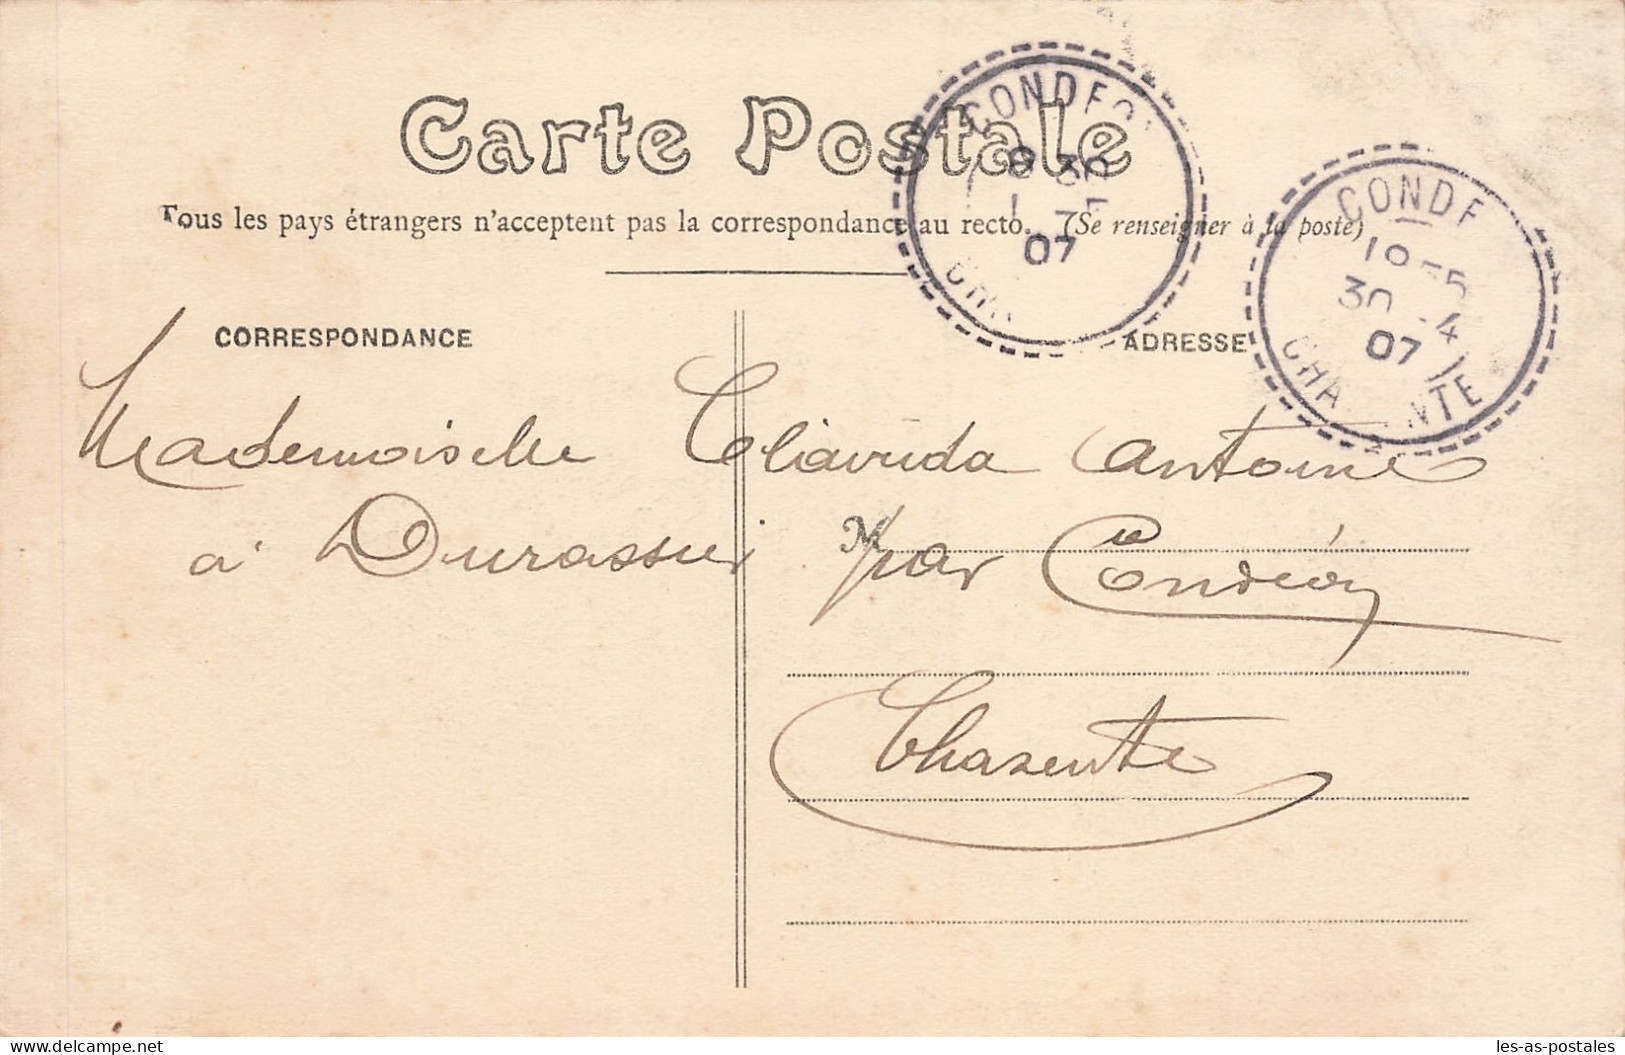 Carte Postale
Tous les pays étrangers n'acceptent pas la correspondance au recto. (Se renseigner à la poste)
CONDEO
8 30
1 -5
07
CHA
CONDE
18 55
30 -4
07
CHA NTE
CORRESPONDANCE
ADRESSE
Mademoiselle Antoine
à par Condéon
Charente
delcampe.net
les-as-postales